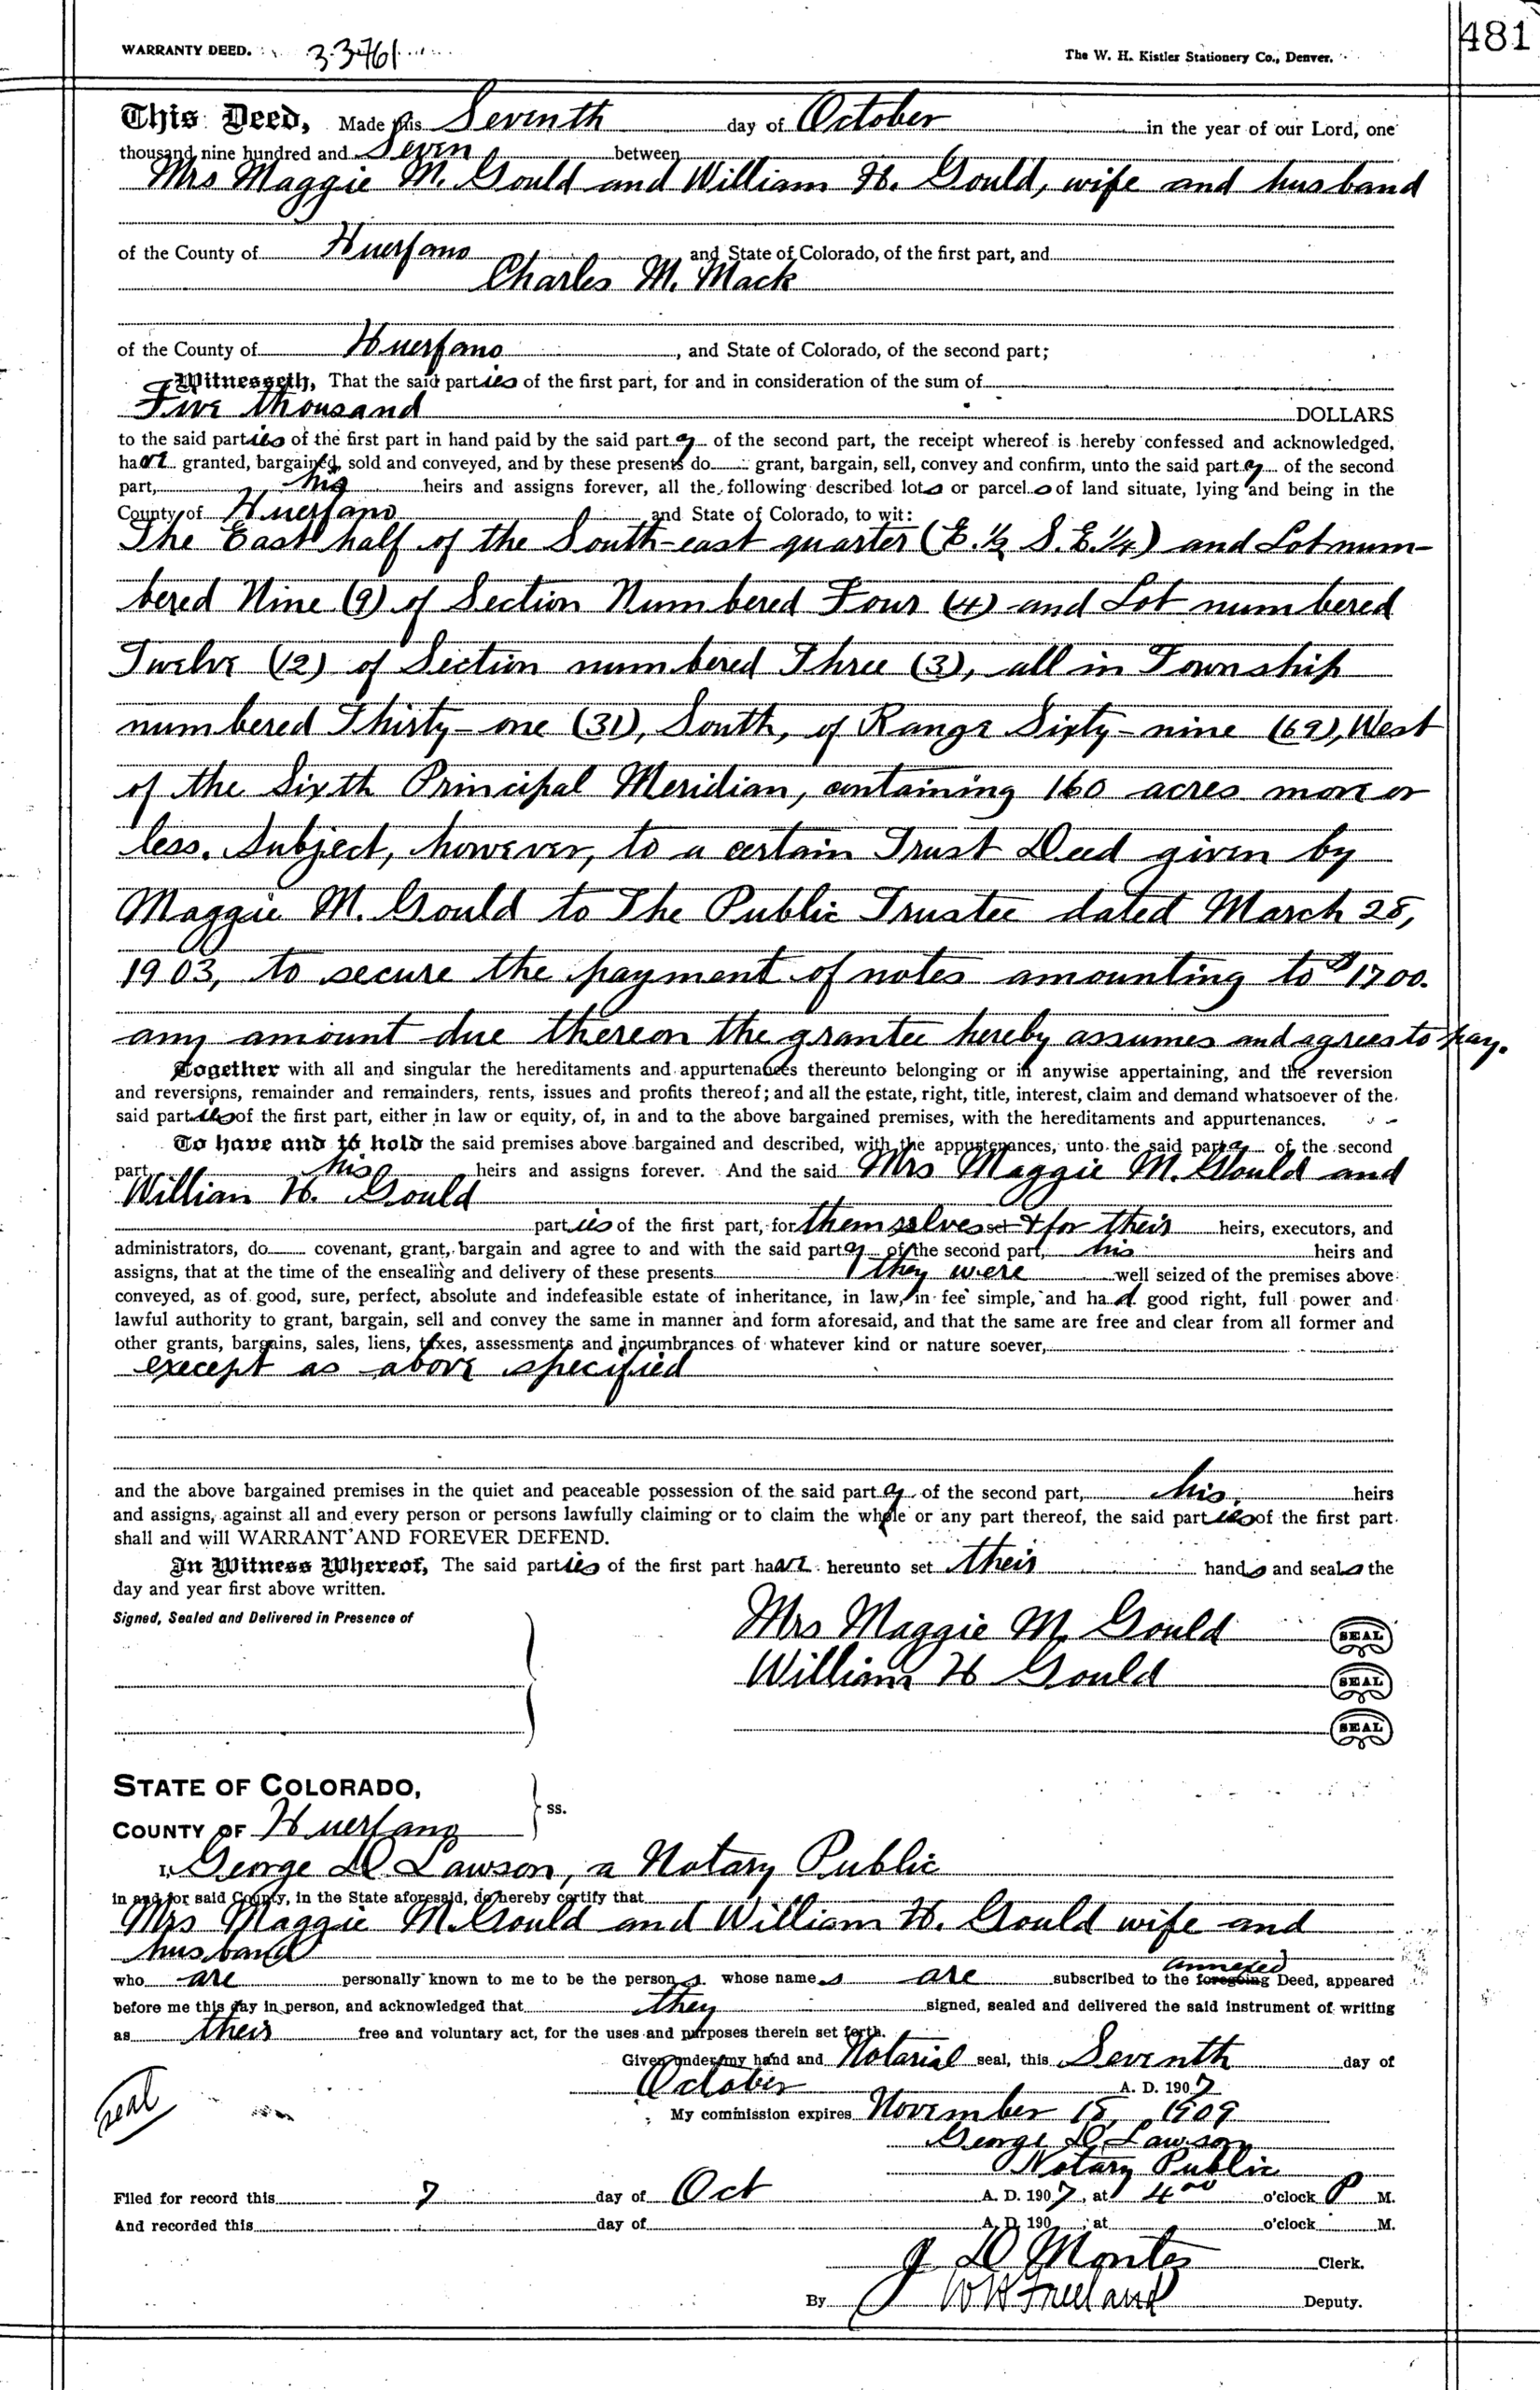 481
WARRANTY DEED. 33761 The W. H. Kistler Stationery Co., Denver.
This Deed, Made this Seventh day of October in the year of our Lord, one
thousand nine hundred and Seven between
Mrs Maggie M. Gould and William H. Gould, wife and husband
of the County of Huerfano and State of Colorado, of the first part, and
Charles M. Mack
of the County of Huerfano, and State of Colorado, of the second part;
Witnesseth, That the said parties of the first part, for and in consideration of the sum of
Five thousand DOLLARS
to the said parties of the first part in hand paid by the said party of the second part, the receipt whereof is hereby confessed and acknowledged,
have granted, bargained, sold and conveyed, and by these presents do grant, bargain, sell, convey and confirm, unto the said party of the second
part, his heirs and assigns forever, all the following described lots or parcels of land situate, lying and being in the
County of Huerfano and State of Colorado, to wit:
The East half of the South-east quarter (E. ½ S.E. ¼) and Lot num-
bered Nine (9) of Section Numbered Four (4) and Lot numbered
Twelve (12) of Section numbered Three (3), all in Township
numbered Thirty-one (31), South, of Range Sixty-nine (69), West
of the Sixth Principal Meridian, containing 160 acres more or
less. Subject, however, to a certain Trust Deed given by
Maggie M. Gould to The Public Trustee dated March 28,
1903, to secure the payment of notes amounting to $1700.
any amount due thereon the grantee hereby assumes and agrees to pay.
Together with all and singular the hereditaments and appurtenances thereunto belonging or in anywise appertaining, and the reversion
and reversions, remainder and remainders, rents, issues and profits thereof; and all the estate, right, title, interest, claim and demand whatsoever of the
said parties of the first part, either in law or equity, of, in and to the above bargained premises, with the hereditaments and appurtenances.
To have and to hold the said premises above bargained and described, with the appurtenances, unto the said party of the second
part, his heirs and assigns forever. And the said Mrs Maggie M. Gould and
William H. Gould
parties of the first part, for themselves & for their heirs, executors, and
administrators, do covenant, grant, bargain and agree to and with the said party of the second part, his heirs and
assigns, that at the time of the ensealing and delivery of these presents they were well seized of the premises above
conveyed, as of good, sure, perfect, absolute and indefeasible estate of inheritance, in law, in fee simple, and had good right, full power and
lawful authority to grant, bargain, sell and convey the same in manner and form aforesaid, and that the same are free and clear from all former and
other grants, bargains, sales, liens, taxes, assessments and incumbrances of whatever kind or nature soever,
except as above specified
and the above bargained premises in the quiet and peaceable possession of the said party of the second part, his heirs
and assigns, against all and every person or persons lawfully claiming or to claim the whole or any part thereof, the said parties of the first part
shall and will WARRANT AND FOREVER DEFEND.
In Witness Whereof, The said parties of the first part have hereunto set their hands and seals the
day and year first above written.
Signed, Sealed and Delivered in Presence of
Mrs Maggie M. Gould SEAL
William H Gould SEAL
SEAL
STATE OF COLORADO,
COUNTY OF Huerfano ss.
I, George D Lawson, a Notary Public
in and for said County, in the State aforesaid, do hereby certify that
Mrs Maggie M. Gould and William H. Gould wife and
husband
annexed
who are personally known to me to be the persons whose names are subscribed to the foregoing Deed, appeared
before me this day in person, and acknowledged that they signed, sealed and delivered the said instrument of writing
as their free and voluntary act, for the uses and purposes therein set forth.
Given under my hand and Notarial seal, this Seventh day of
October A. D. 1907
seal
My commission expires November 15, 1909
George D. Lawson
Notary Public
Filed for record this 7 day of Oct A. D. 1907, at 4 00 o'clock P M.
And recorded this day of A. D. 190 , at o'clock M.
J D Montez Clerk.
By W H Freeland Deputy.